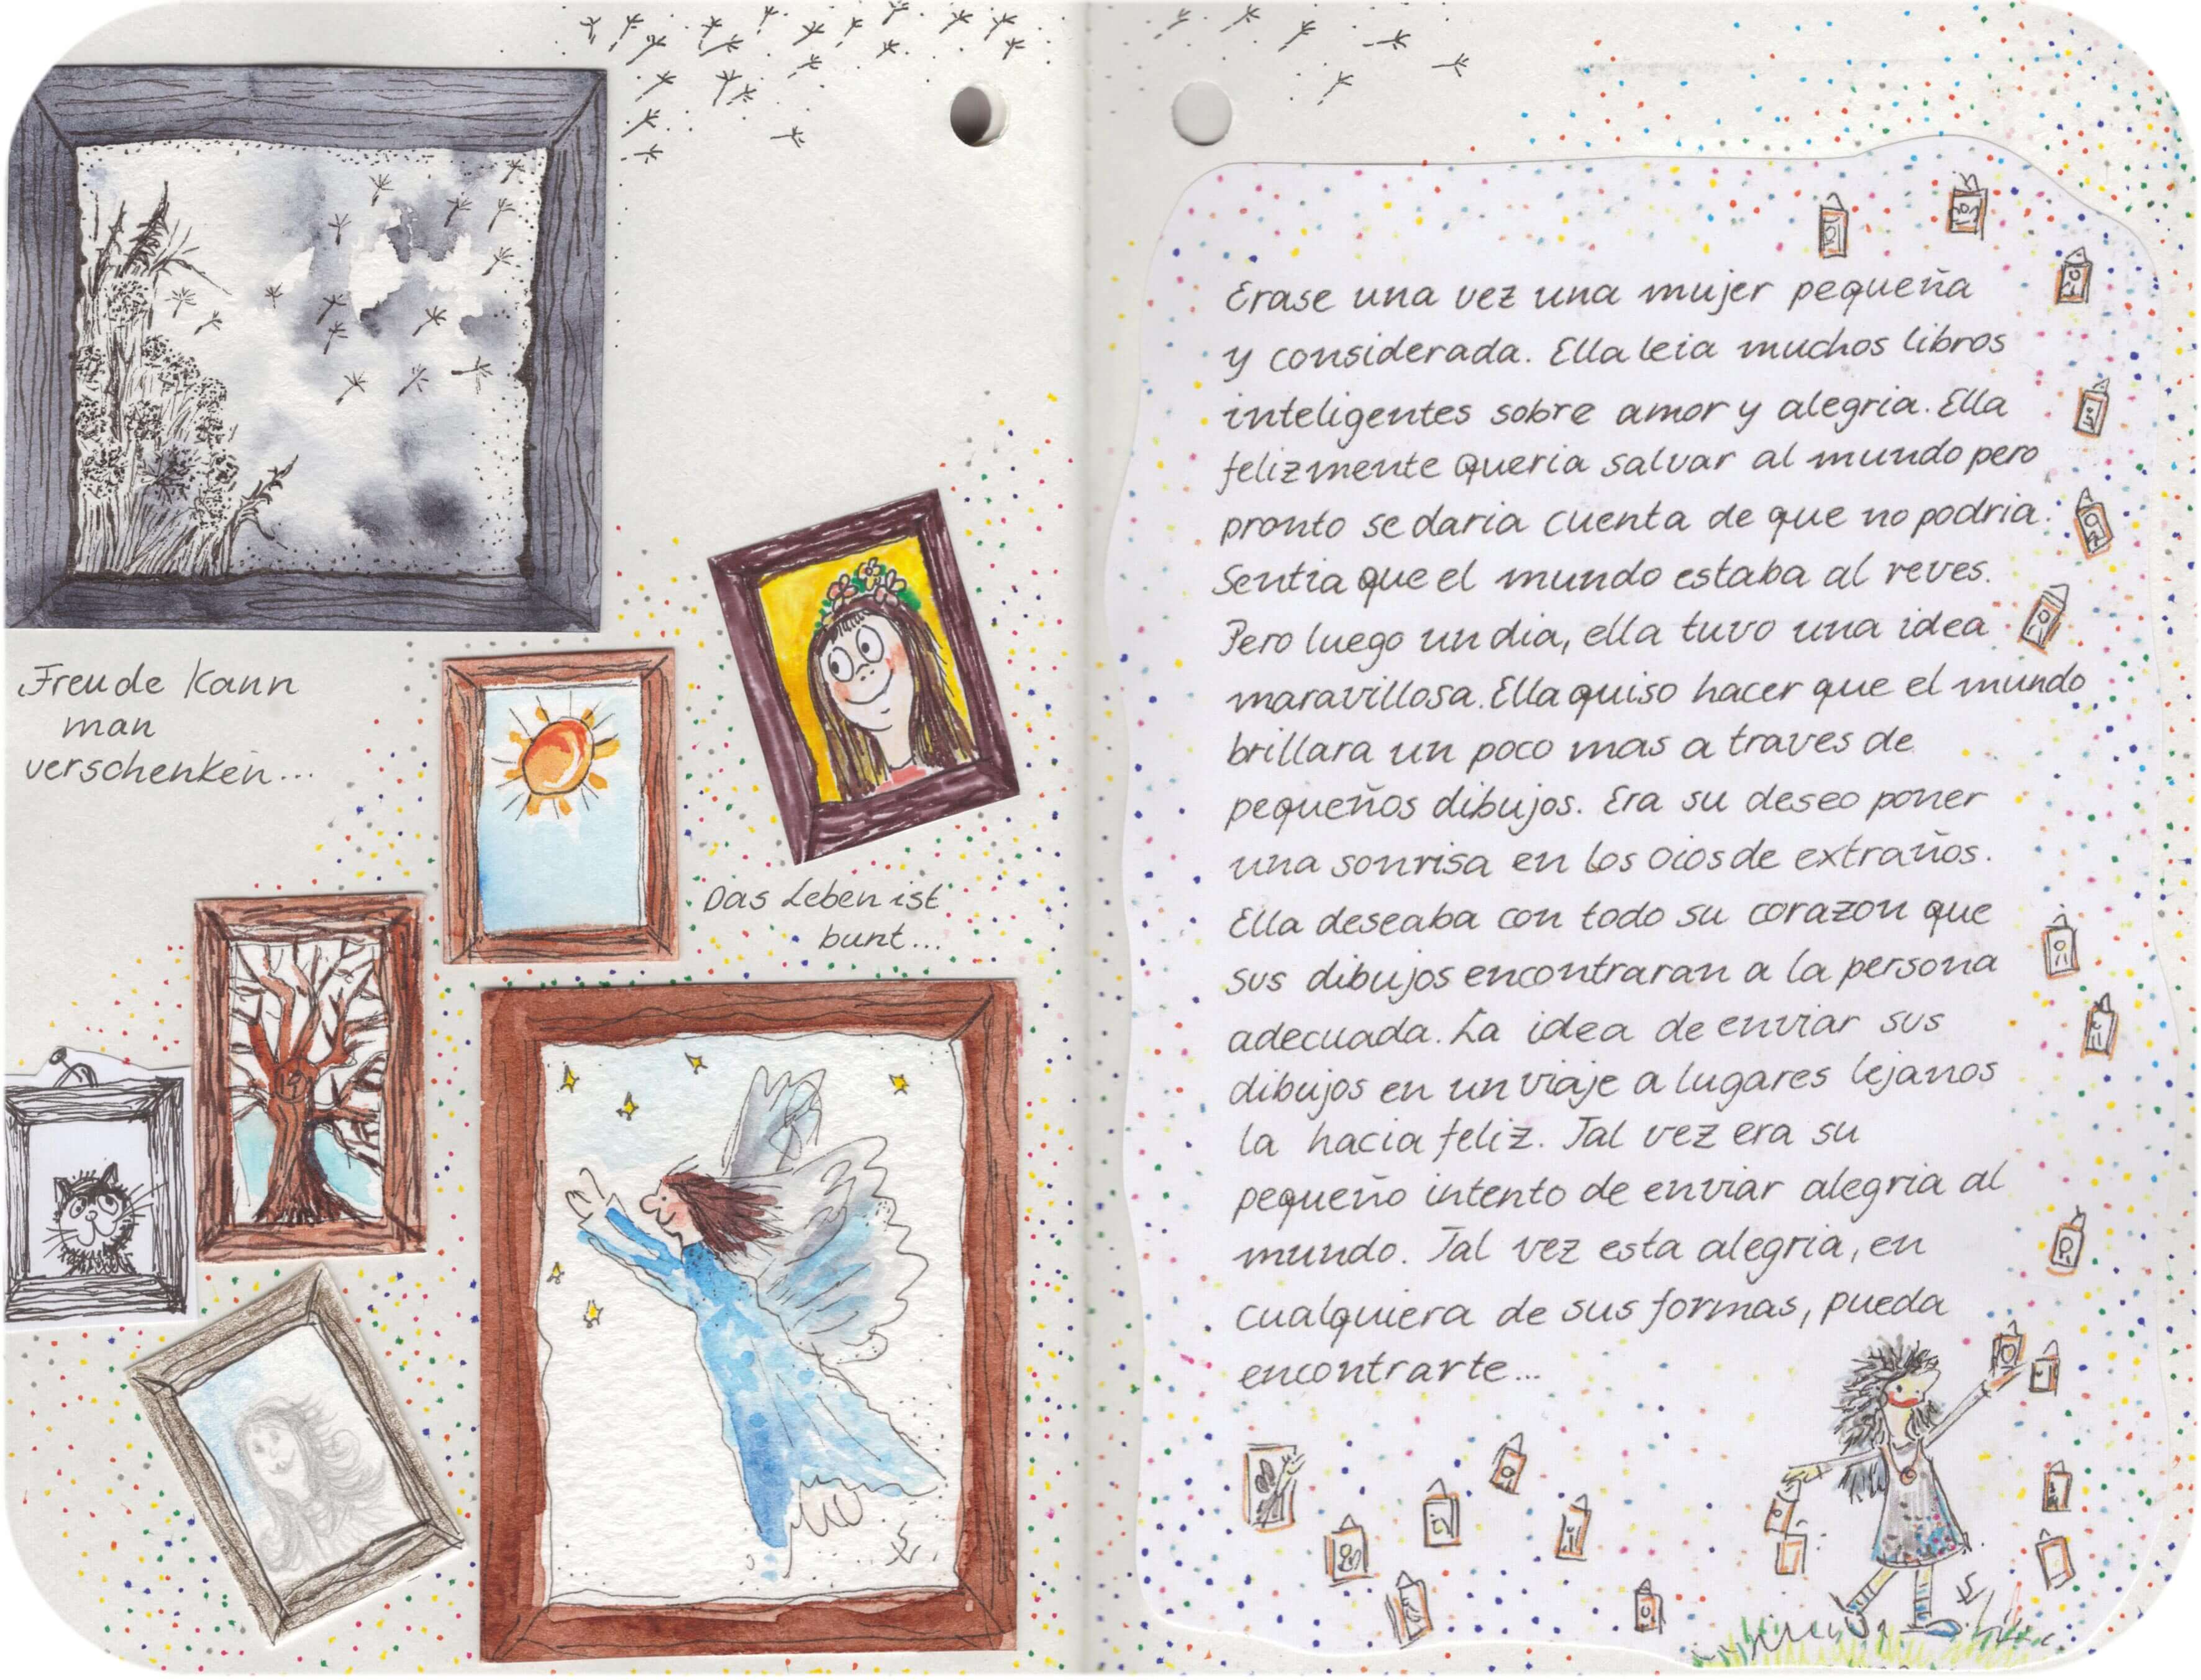 Freude kann
man
verschenken...
Das Leben ist
bunt...
Erase una vez una mujer pequeña
y considerada. Ella leia muchos libros
inteligentes sobre amor y alegria. Ella
felizmente queria salvar al mundo pero
pronto se daria cuenta de que no podria.
Sentia que el mundo estaba al reves.
Pero luego un dia, ella tuvo una idea
maravillosa. Ella quiso hacer que el mundo
brillara un poco mas a traves de
pequeños dibujos. Era su deseo poner
una sonrisa en los oios de extraños.
Ella deseaba con todo su corazon que
sus dibujos encontraran a la persona
adecuada. La idea de enviar sus
dibujos en un viaje a lugares lejanos
la hacia feliz. Tal vez era su
pequeño intento de enviar alegria al
mundo. Tal vez esta alegria, en
cualquiera de sus formas, pueda
encontrarte...